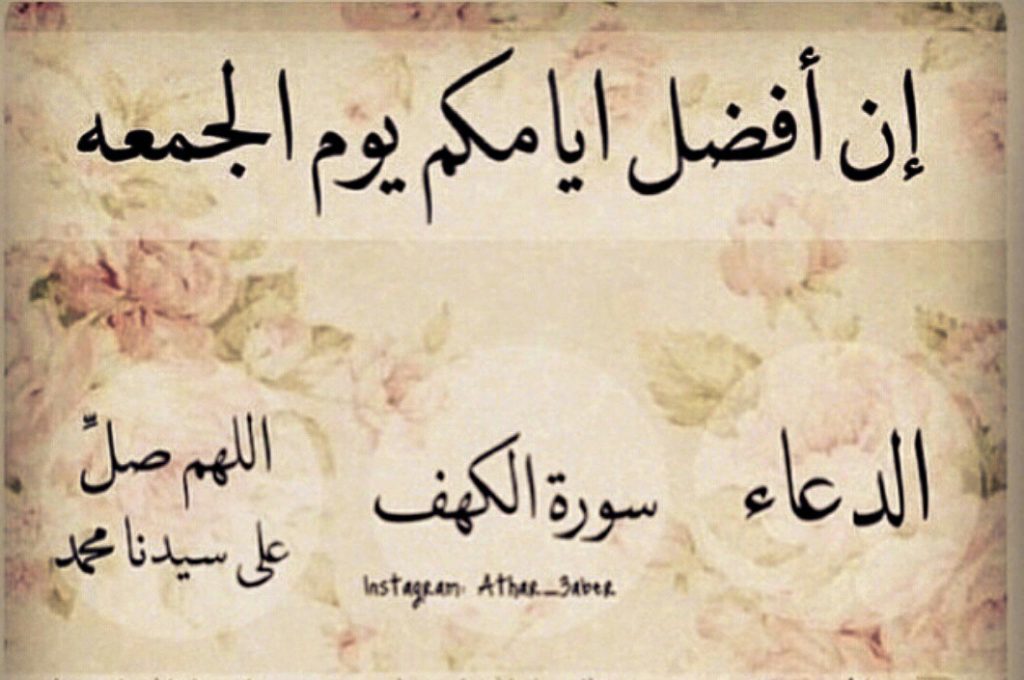 إن أفضل ايامكم يوم الجمعه
الدعاء
سورة الكهف
اللهم صلِّ
على سيدنا محمد
Instagram: Athar_3aber